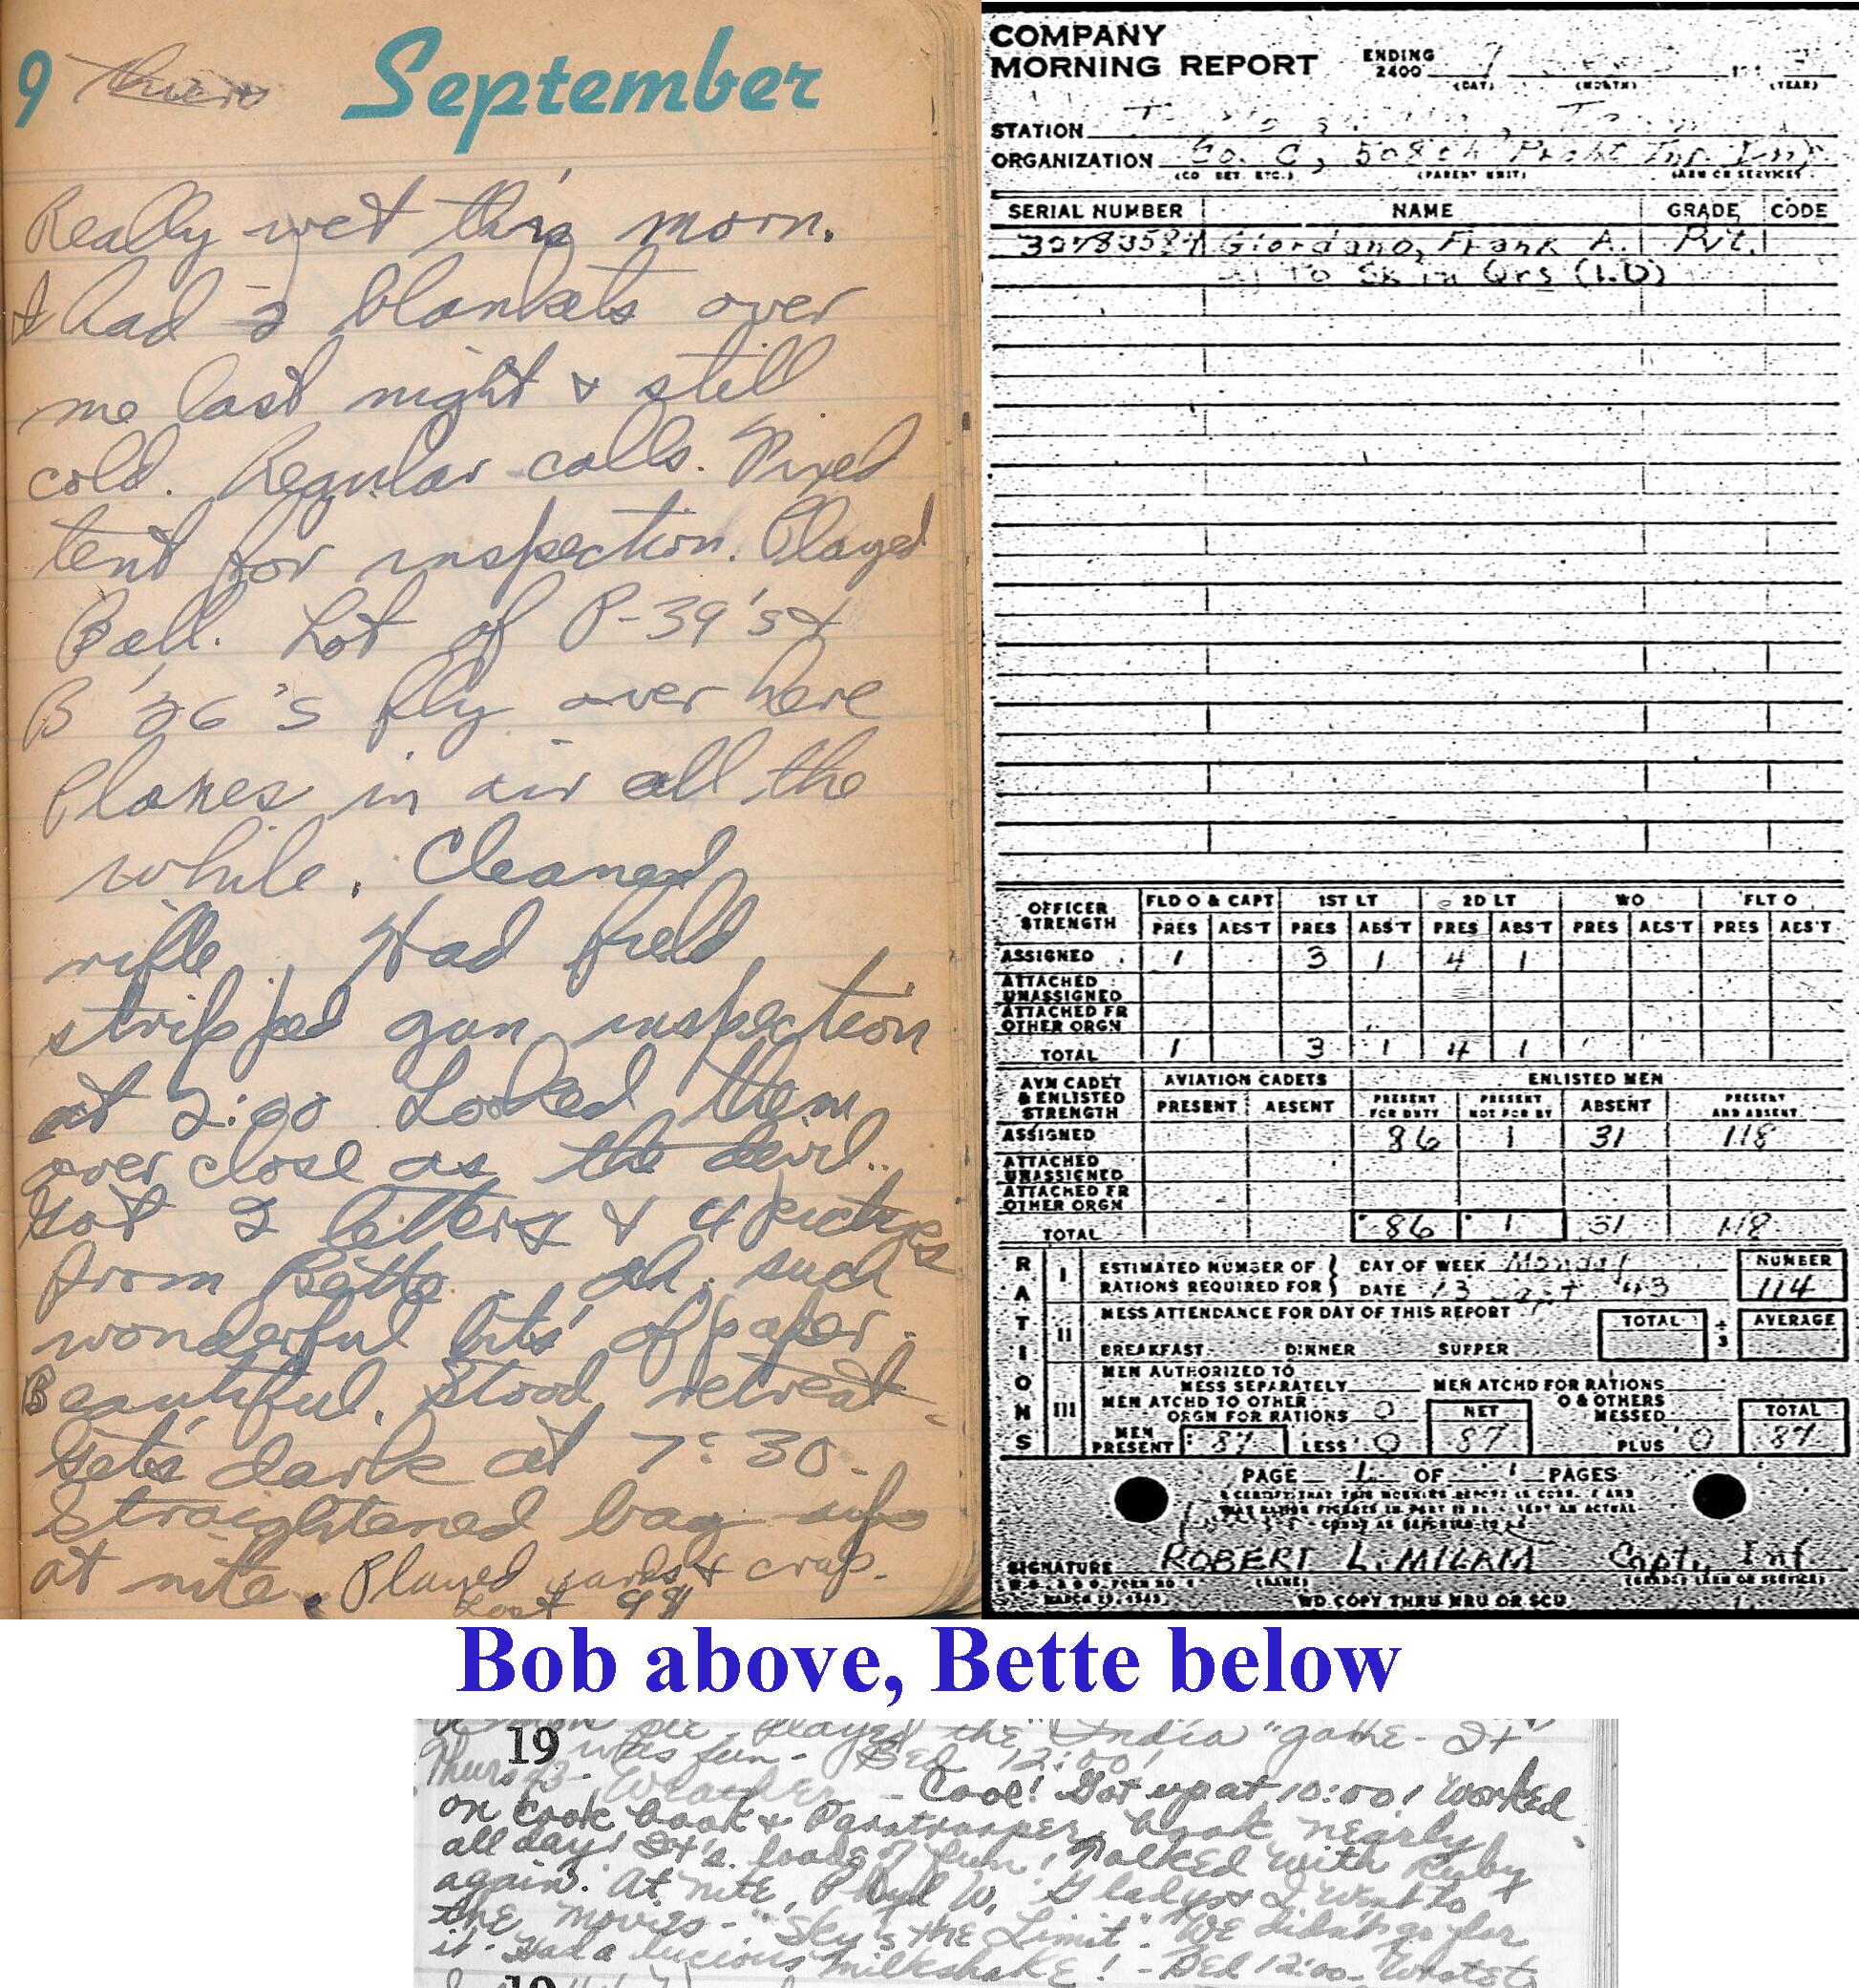 9 Thurs September
Really wet this morn.
I had 2 blankets over
me last night & still
cold. Regular calls. Fixed
tent for inspection. Played
Ball. Lot of P-39's &
B '26's fly over here
Planes in air all the
while. Cleaned
rifle. Had field
stripped gun inspection
at 2:00 Looked them
over close as the devil..
Got 2 letters & 4 pictures
from Bette. Oh, such
wonderful bits of paper.
Beautiful. Stood retreat-
Gets dark at 7:30.
Straightened bag
at nite. Played cards & crap.
Lost
COMPANY
MORNING REPORT ENDING
2400
(DAY) (MONTH) (YEAR)
STATION
ORGANIZATION Co. C, 508th Prcht Inf Inf
(CO DET. ETC.) (PARENT UNIT) (ARM OR SERVICE)
SERIAL NUMBER NAME GRADE CODE
Giordano, Frank A. Pvt.
To Sk in Qrs (LD)
OFFICER STRENGTH FLD O & CAPT 1ST LT 2D LT WO FLT O
PRES ABS'T PRES ABS'T PRES ABS'T PRES ABS'T PRES ABS'T
ASSIGNED 1 3 1 4 1
ATTACHED UNASSIGNED
ATTACHED FR OTHER ORGN
TOTAL 1 3 1 4 1
AVN CADET & ENLISTED STRENGTH AVIATION CADETS ENLISTED MEN
PRESENT ABSENT PRESENT FOR DUTY PRESENT NOT FOR DY ABSENT PRESENT AND ABSENT
ASSIGNED 86 1 31 118
ATTACHED UNASSIGNED
ATTACHED FR OTHER ORGN
TOTAL 86 1 31 118
RATIONS
I ESTIMATED NUMBER OF RATIONS REQUIRED FOR DAY OF WEEK Monday NUMBER
DATE 13 Sept 43 114
II MESS ATTENDANCE FOR DAY OF THIS REPORT TOTAL ÷ 3 AVERAGE
BREAKFAST DINNER SUPPER
III MEN AUTHORIZED TO MESS SEPARATELY MEN ATCHD FOR RATIONS
MEN ATCHD TO OTHER ORGN FOR RATIONS 0 NET O & OTHERS MESSED TOTAL
MEN PRESENT 87 LESS 0 87 PLUS 0 87
PAGE 1 OF 1 PAGES
SIGNATURE ROBERT L. MILAM Capt, Inf
(NAME) (GRADE) (ARM OR SERVICE)
MARCH 29, 1943 WD COPY THRU MRU OR SCU
Bob above, Bette below
Played the "India" game - It
19 was fun - Bed 12:00!
Thurs 43 - Weather - Cool! Got up at 10:00! Worked
on cook book & Paratrooper book nearly
all day! It's loads of fun! Talked with Ruby
again. At nite, Phyl W, Gladys & I went to
the movies - "Sky's the Limit". We didn't go for
it - Had a lucious milkshake! - Bed 12:00 -
19